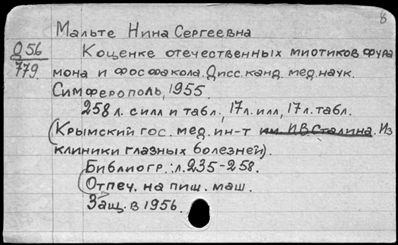 8
Мальте Нина Сергеевна
Д 56
779.
К оценке отечественных миотиков фура
мона и фосфакола. Дисс. канд. мед. наук.
Симферополь, 1955
258 л. с илл и табл., 17 л. илл, 17 л. табл.
(Крымский гос. мед. ин-т им. И.В. Сталина. Из
клиники глазных болезней).
Библиогр.: л. 235-258.
Отпеч. на пиш. маш.
Защ. в 1956.